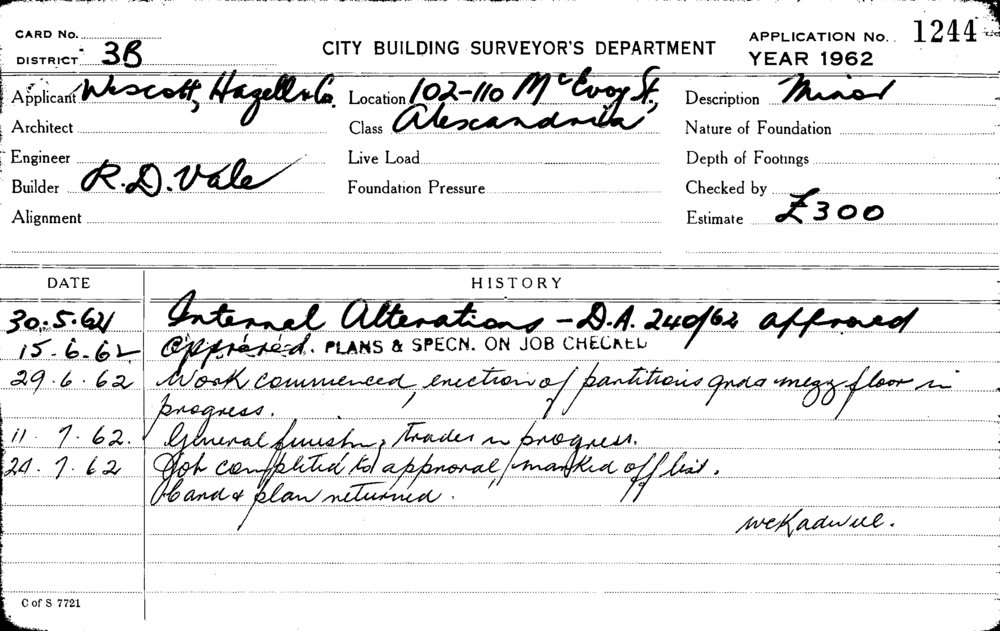 CARD No.
DISTRICT 3B
CITY BUILDING SURVEYOR'S DEPARTMENT
APPLICATION No. 1244
YEAR 1962
Applicant Wescott, Hazell & Co. Location 102-110 McEvoy St., Description Minor
Architect Class Alexandria Nature of Foundation
Engineer Live Load Depth of Footings
Builder R.D. Vale Foundation Pressure Checked by
Alignment Estimate £300
DATE HISTORY
30.5.62 Internal Alterations - D.A. 240/62 approved
15.6.62 Approved. PLANS & SPECN. ON JOB CHECKED
29.6.62 Work commenced, erection of partitions grd & mezz floor in
progress.
11.7.62. General finishing trades in progress.
24.7.62 Job completed to approval, marked off list.
Card & plan returned.
C of S 7721